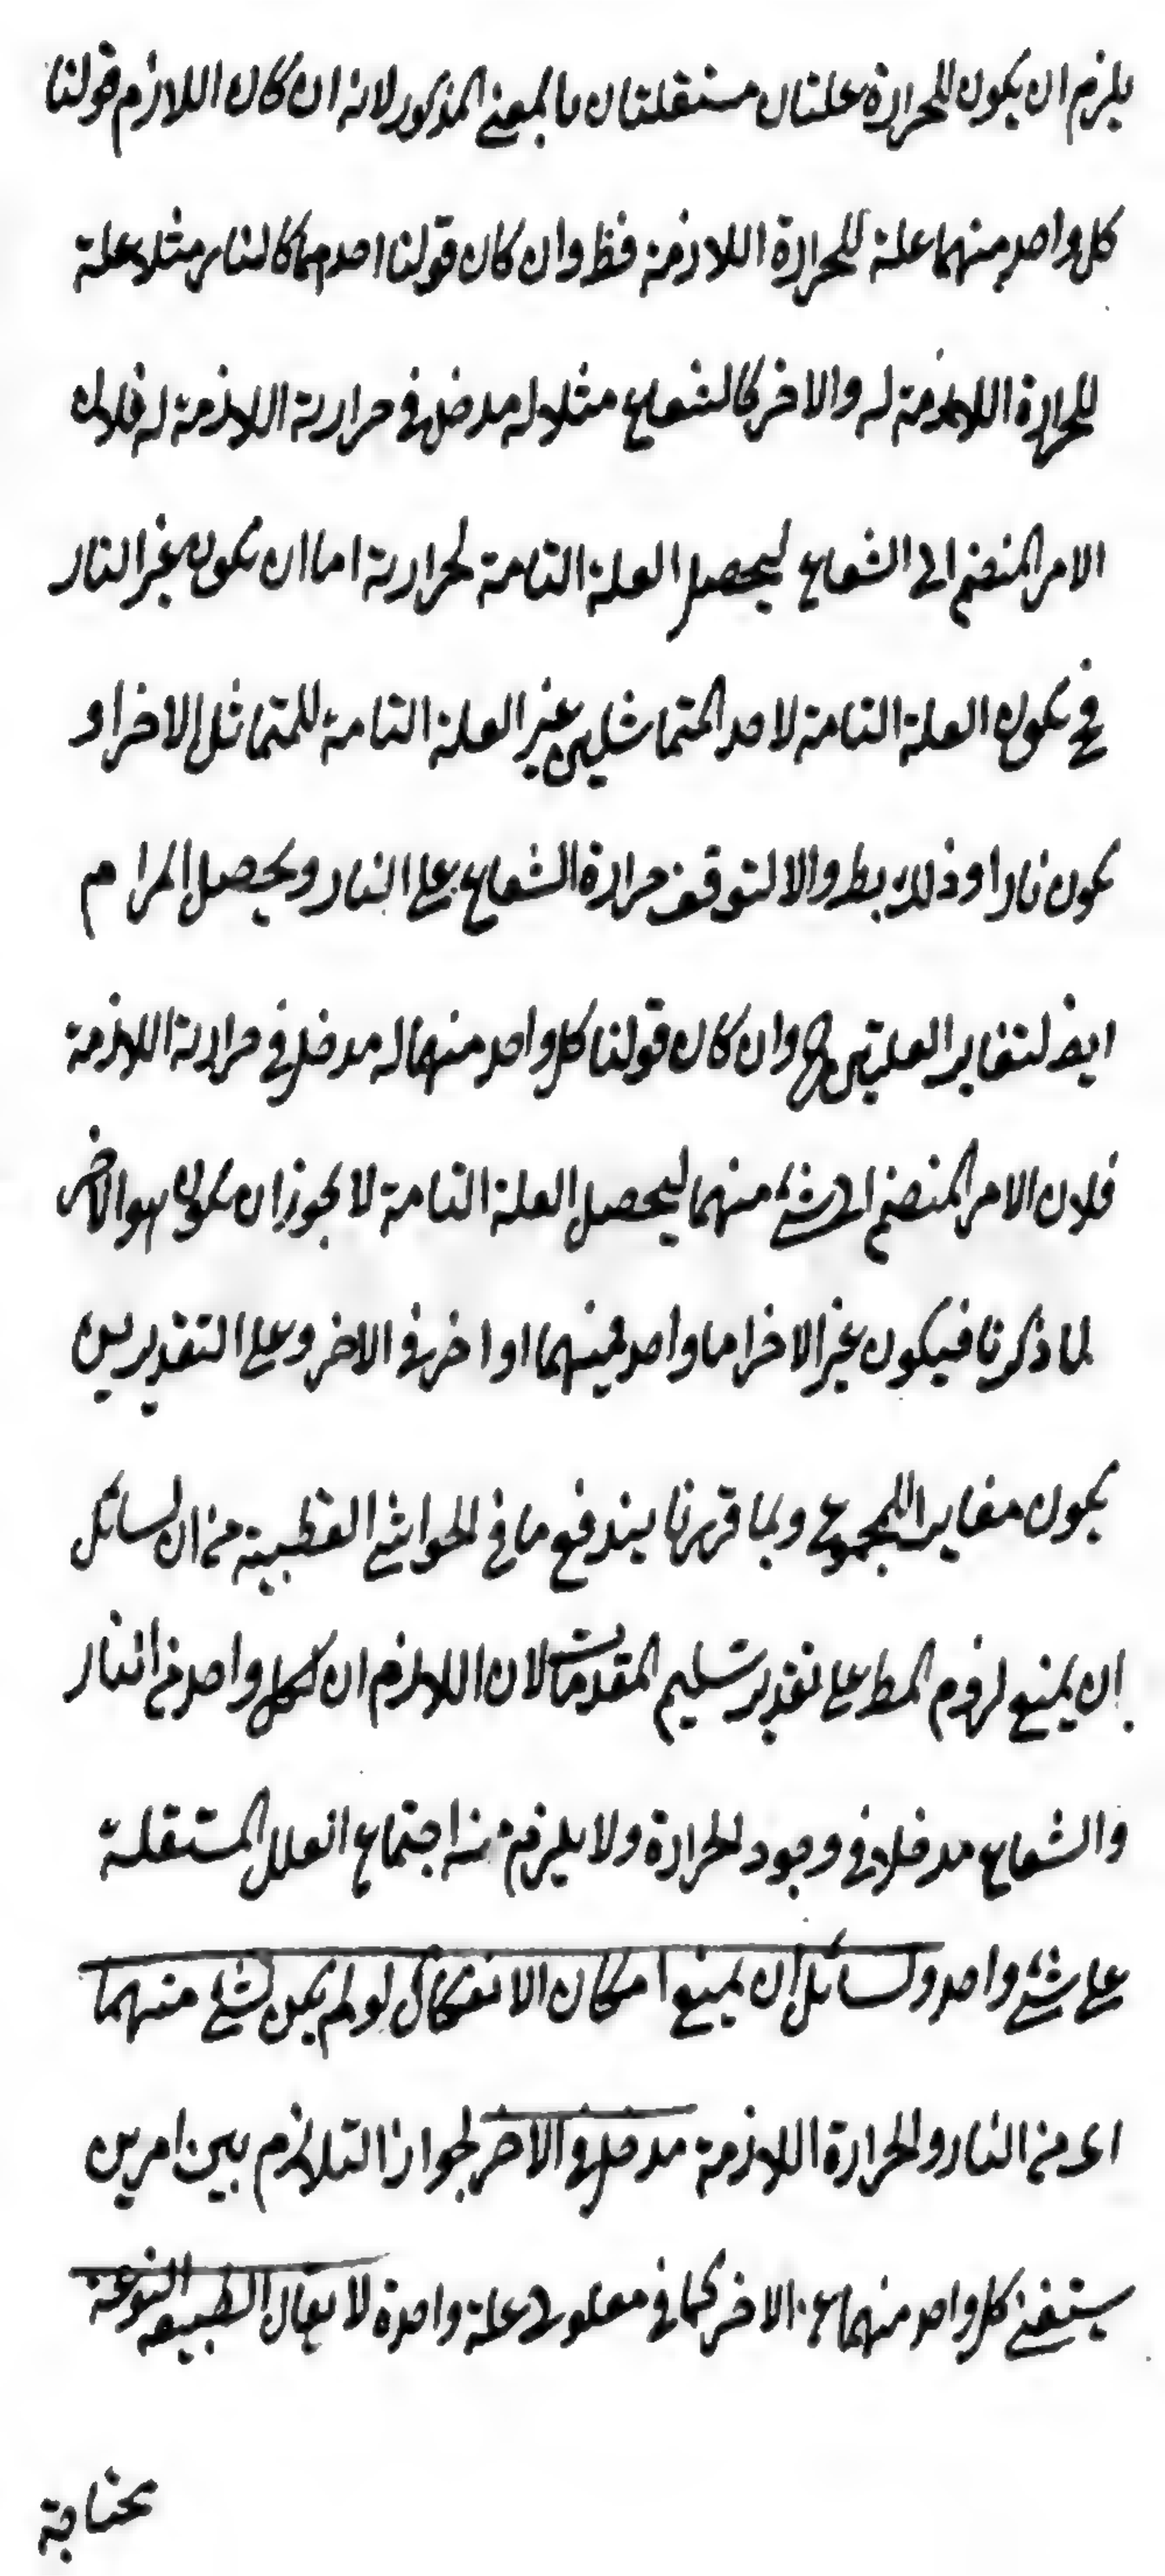 يلزم ان يكون للحرارة علتان مستقلتان بالمعنى المذكور لانه ان كان اللازم قولنا
كل واحد منهما علة للحرارة اللازمة فظ وان كان قولنا احدهما كالنار مثلا علة
للحرارة اللازمة له والاخر كالشعاع مثلا له مدخل في حرارته اللازمة له فلان
الامر المنضم الى الشعاع ليحصل العلة التامة لحرارته اما ان يكون غير النار
فح يكون العلة التامة لاحد المتماثلين غير العلة التامة للمتماثل الاخر او
يكون نارا وذلك بط والا لتوقف حرارة الشعاع على النار ويحصل المرام
ايض لتغاير العلتين ح وان كان قولنا كل واحد منهما له مدخل في حرارته اللازمة
فلان الامر المنضم الى شئ منهما ليحصل العلة التامة لا يجوز ان يكون هو الاخر
لما ذكرنا فيكون غير الاخر اما واحد فيهما او اخر في الاخر وعلى التقديرين
يكون مغايرا للمجموع وبما قررنا يندفع ما في الحواشي القطبية من ان لسائل
ان يمنع لزوم المط على تقدير تسليم المقدمات لان اللازم ان لكل واحد من النار
والشعاع مدخلا في وجود الحرارة ولا يلزم منه اجتماع العلل المستقلة
على شئ واحد ولسائل ان يمنع امكان الانفكاك لو لم يكن لشئ منهما
اى من النار والحرارة اللازمة مدخل في الاخر لجواز التلازم بين امرين
يستغنى كل واحد منهما عن الاخر كما في معلولى علة واحدة لا يقال الطبيعة النوعية
محتاجة